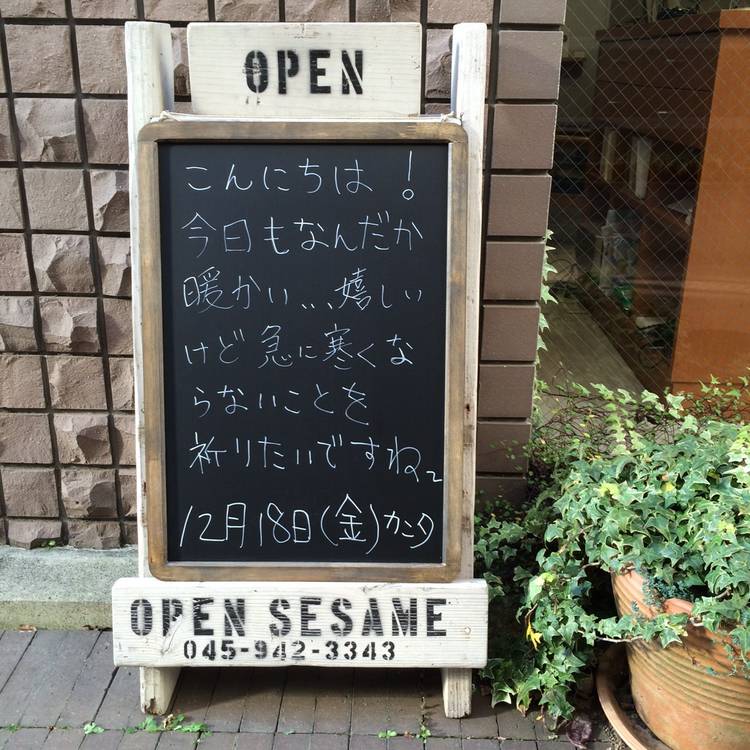 OPEN
こんにちは!
今日もなんだか
暖かい...嬉しい
けど急に寒くな
らないことを
祈りたいですね~
12月18日(金)カニタ
OPEN SESAME
045-942-3343